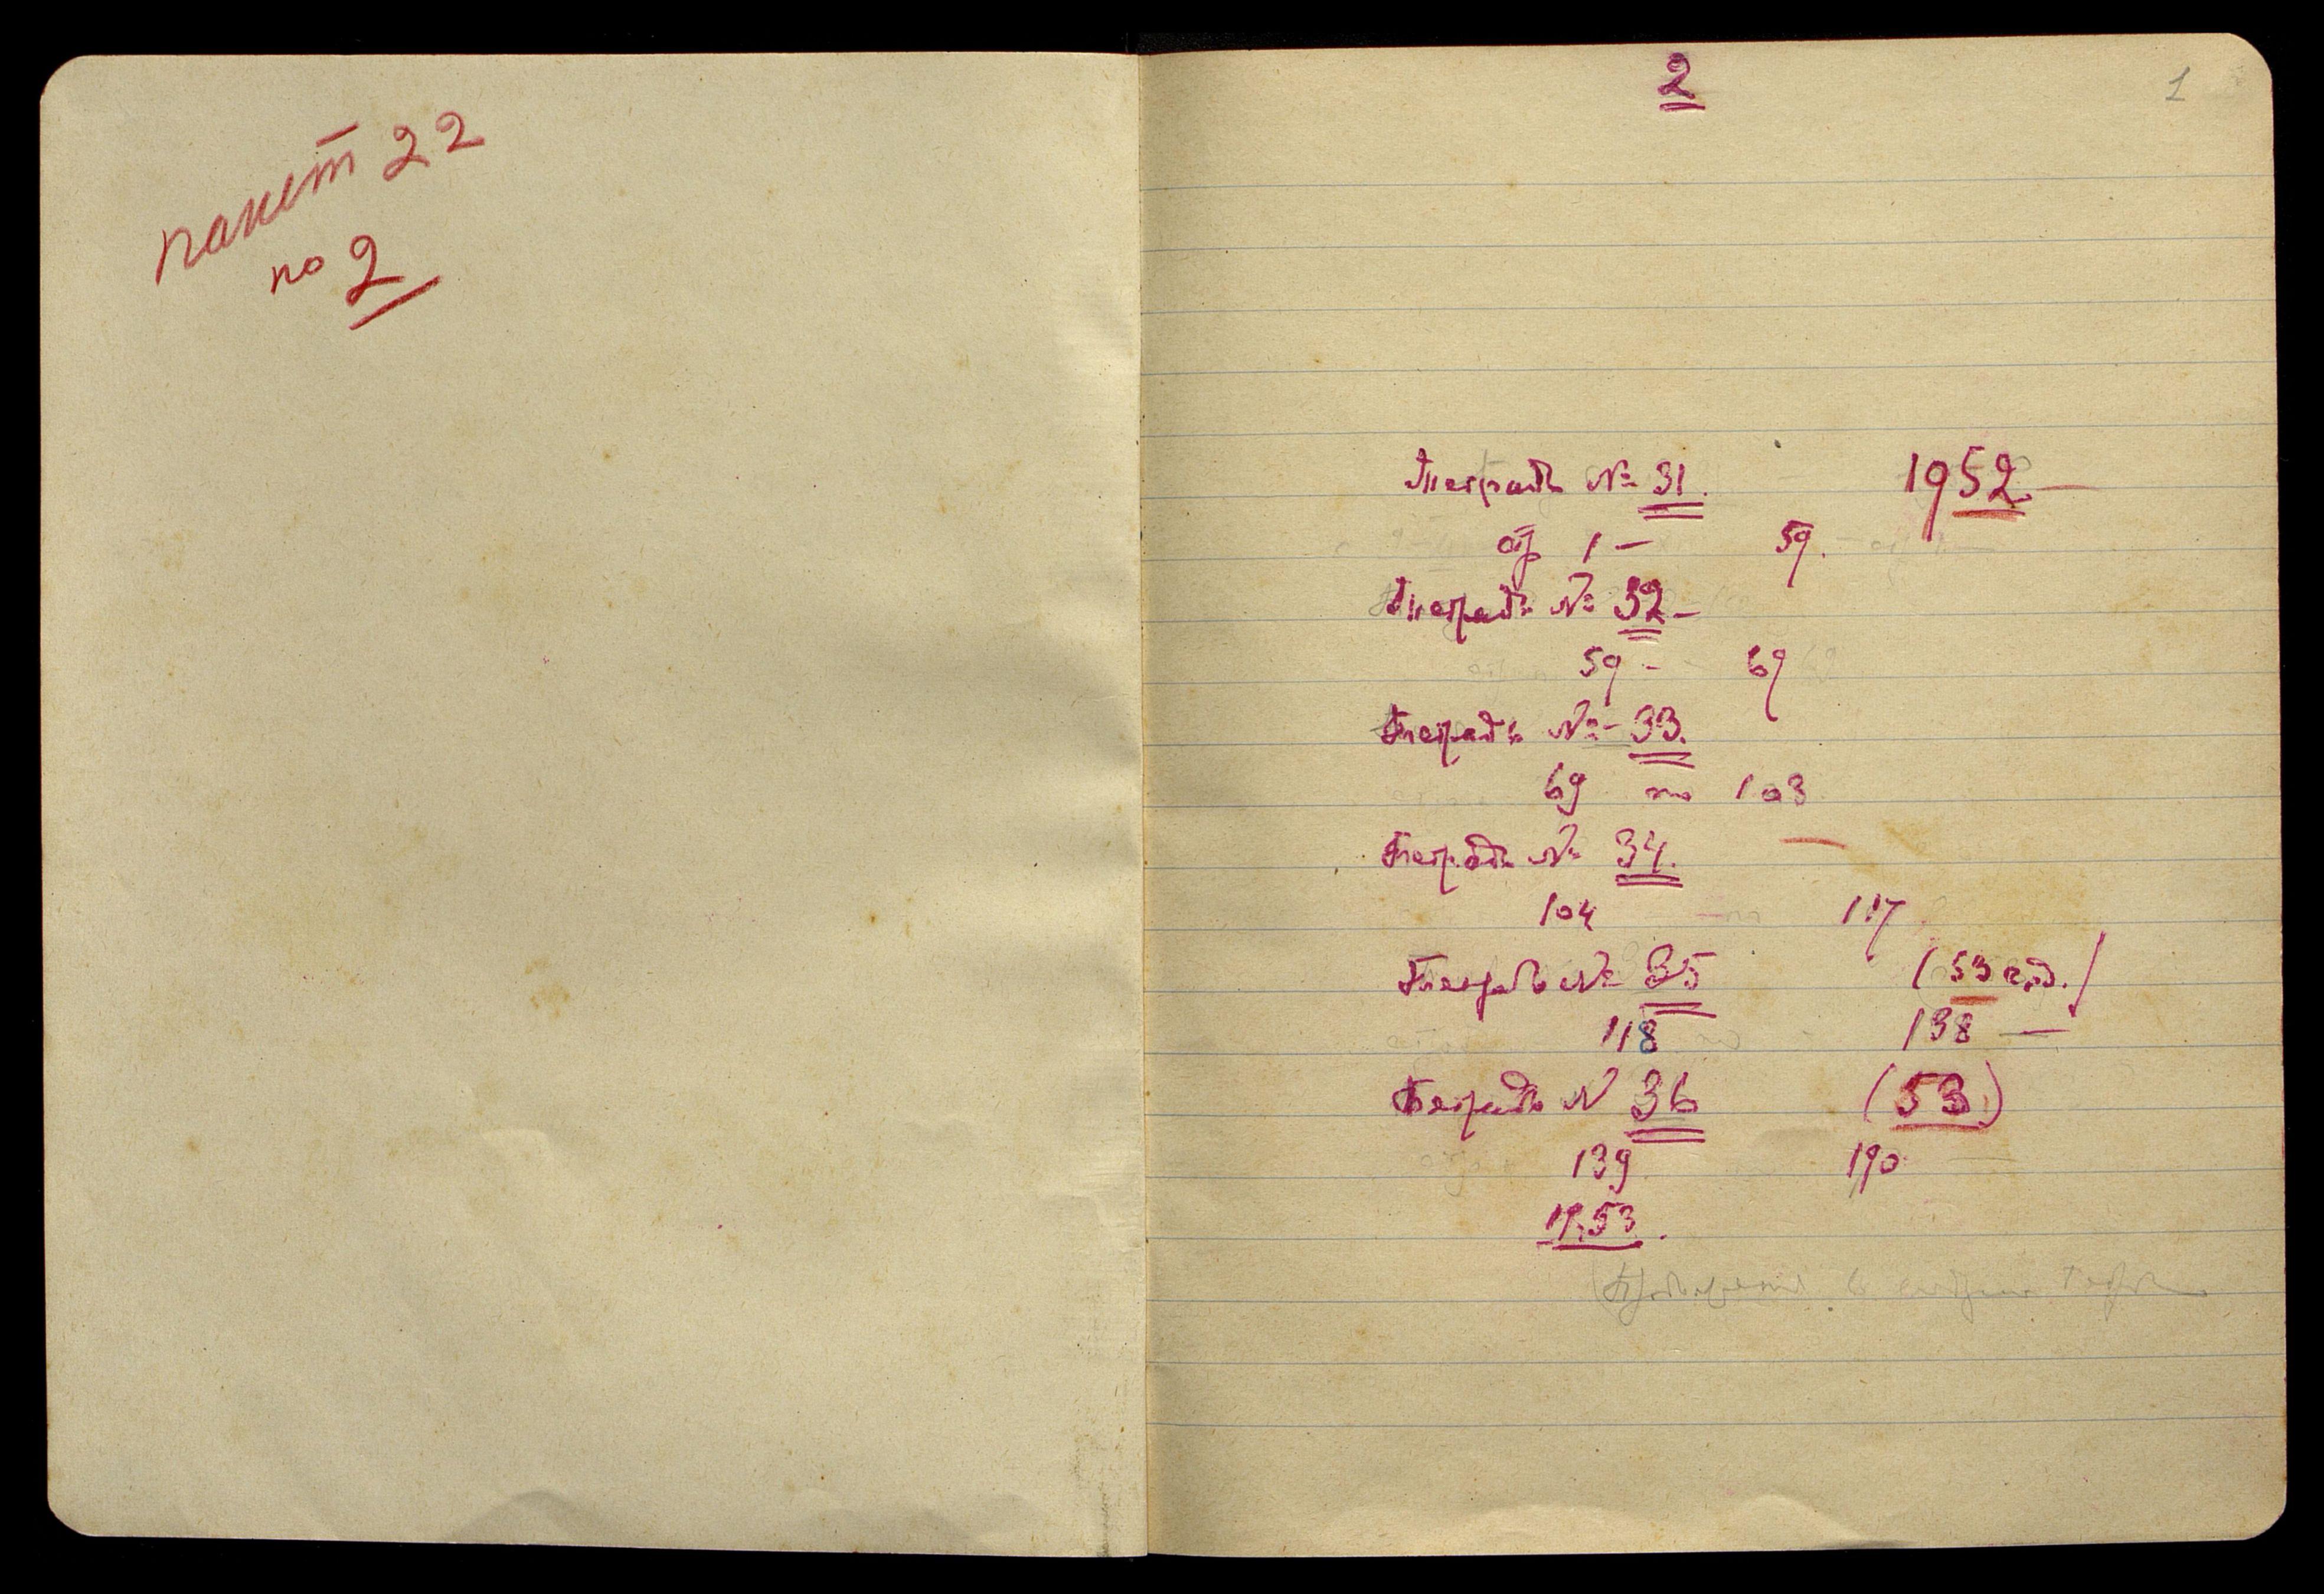 пакет 22
по 2
2
1
Тетрадь № 31. 1952 —
стр 1 — 59.
Тетрадь № 32 —
59 - 69
Тетрадь № - 33.
69 по 103
Тетрадь № 34.
104 — по 117
Тетрадь № 35 (53 год.)
118 по 138 —
Тетрадь № 36 (53)
139 190
1953.